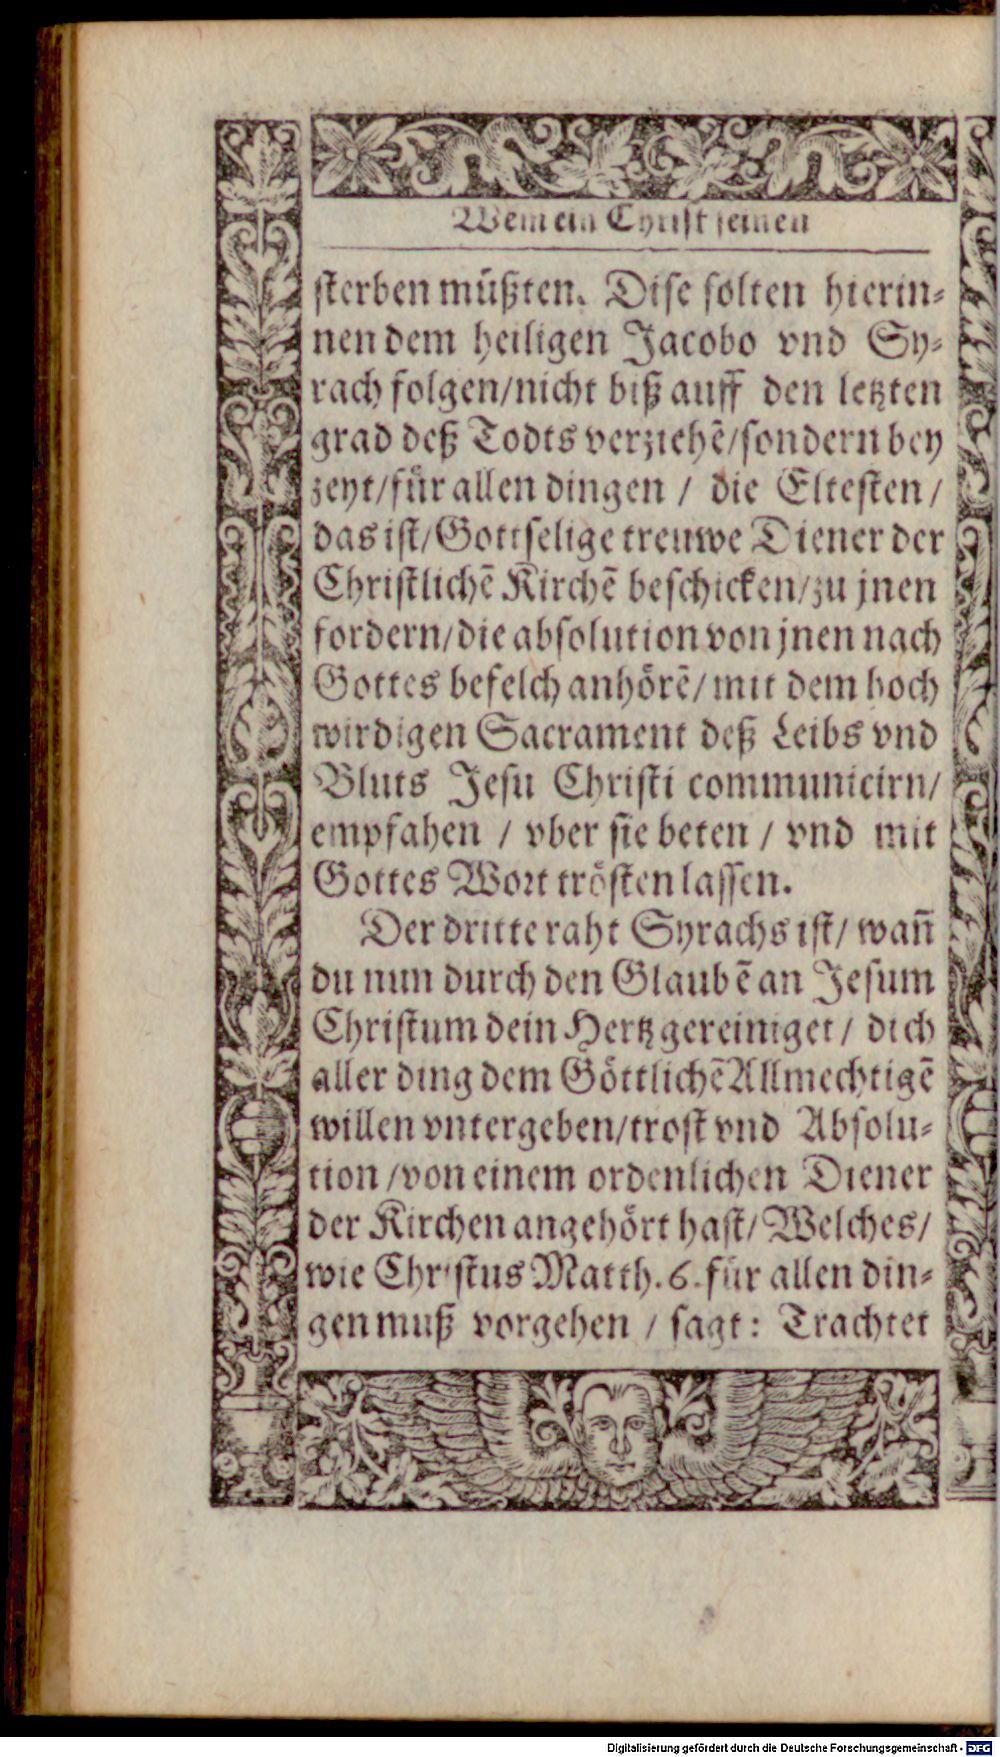 Wem ein Christ seinen
sterben müßten. Dise solten hierin-
nen dem heiligen Jacobo vnd Sy-
rach folgen/nicht biß auff den letzten
grad deß Todts verziehẽ/sondern bey
zeyt/für allen dingen / die Eltesten /
das ist/Gottselige treuwe Diener der
Christlichẽ Kirchẽ beschicken/zu jnen
fordern/die absolution von jnen nach
Gottes befelch anhörẽ/mit dem hoch
wirdigen Sacrament deß Leibs vnd
Bluts Jesu Christi communicirn/
empfahen / vber sie beten / vnd mit
Gottes Wort trösten lassen.
Der dritte raht Syrachs ist/ wañ
du nun durch den Glaubẽ an Jesum
Christum dein Hertz gereiniget/ dich
aller ding dem Göttlichẽ Allmechtigẽ
willen vntergeben/trost vnd Absolu-
tion /von einem ordenlichen Diener
der Kirchen angehört hast/ Welches/
wie Christus Matth. 6. für allen din-
gen muß vorgehen / sagt: Trachtet
Digitalisierung gefördert durch die Deutsche Forschungsgemeinschaft - DFG